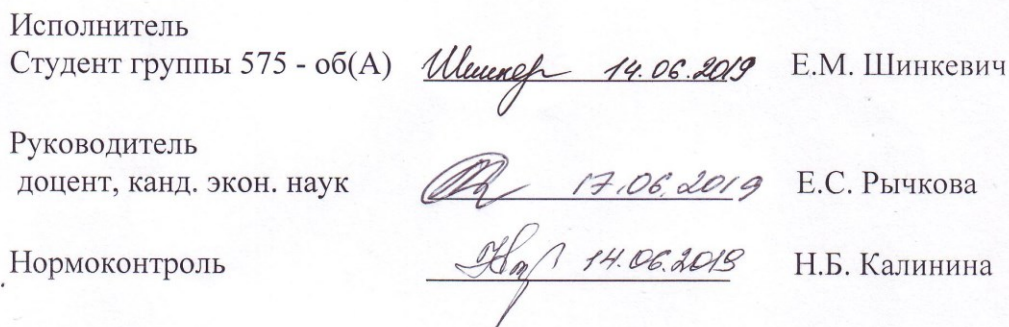 Исполнитель
Студент группы 575 - об(А) 14.06.2019 Е.М. Шинкевич
Руководитель
доцент, канд. экон. наук 17.06.2019 Е.С. Рычкова
Нормоконтроль 14.06.2019 Н.Б. Калинина